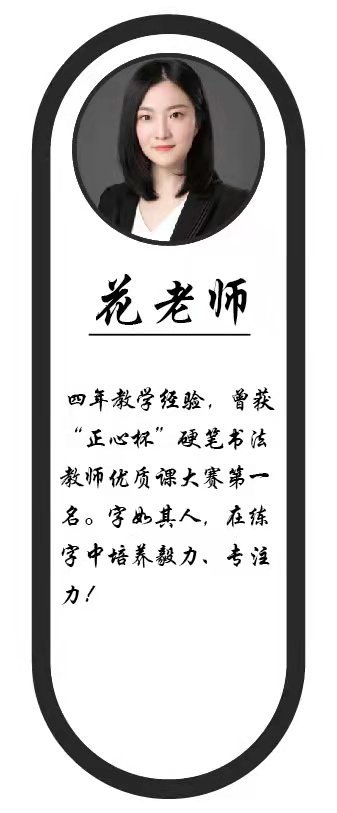 花老师
四年教学经验，曾获
“正心杯”硬笔书法
教师优质课大赛第一
名。字如其人，在练
字中培养毅力、专注
力！